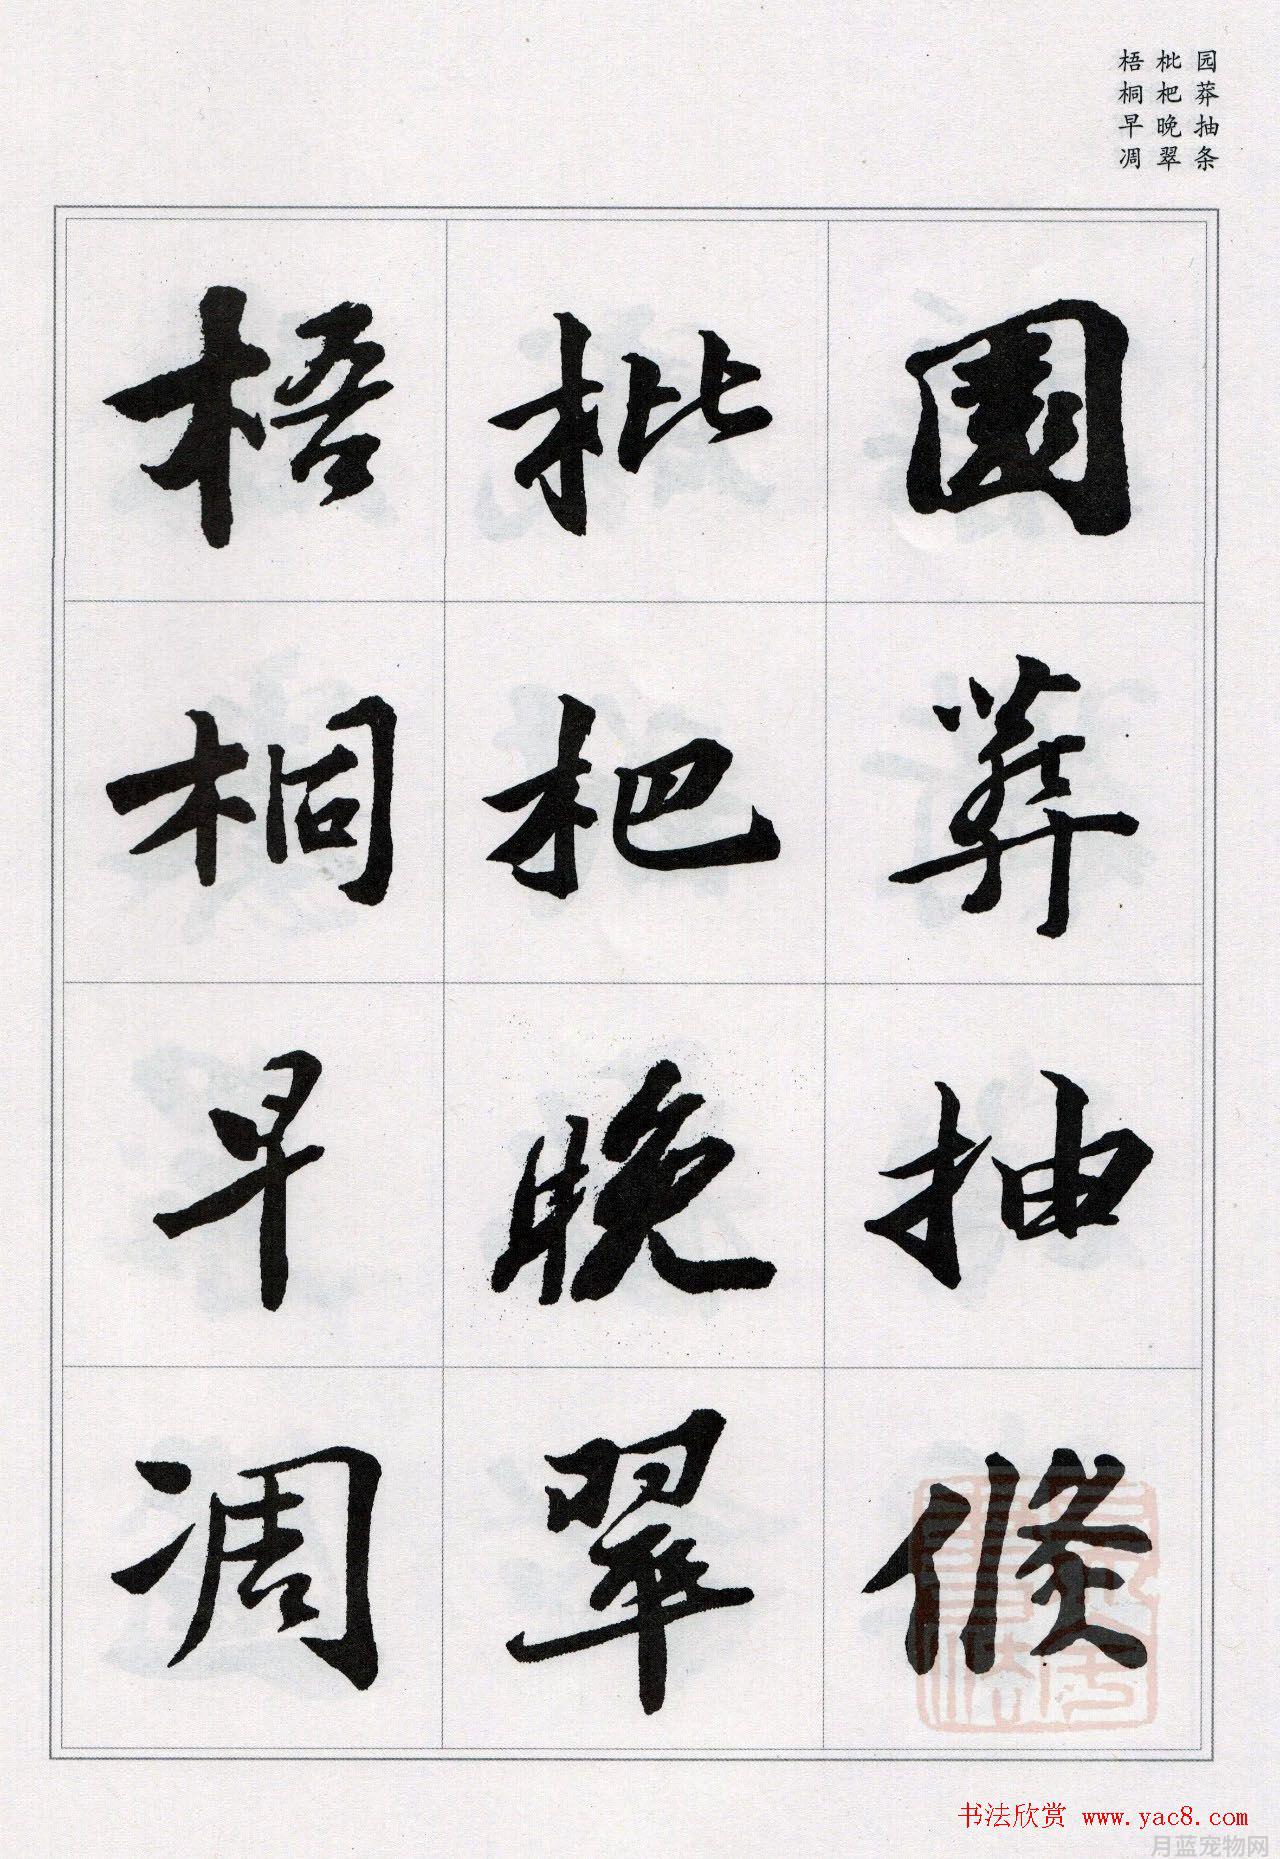 园莽抽条
枇杷晚翠
梧桐早凋
園莽抽條
枇杷晚翠
梧桐早凋
书法欣赏 www.yac8.com
月蓝宠物网